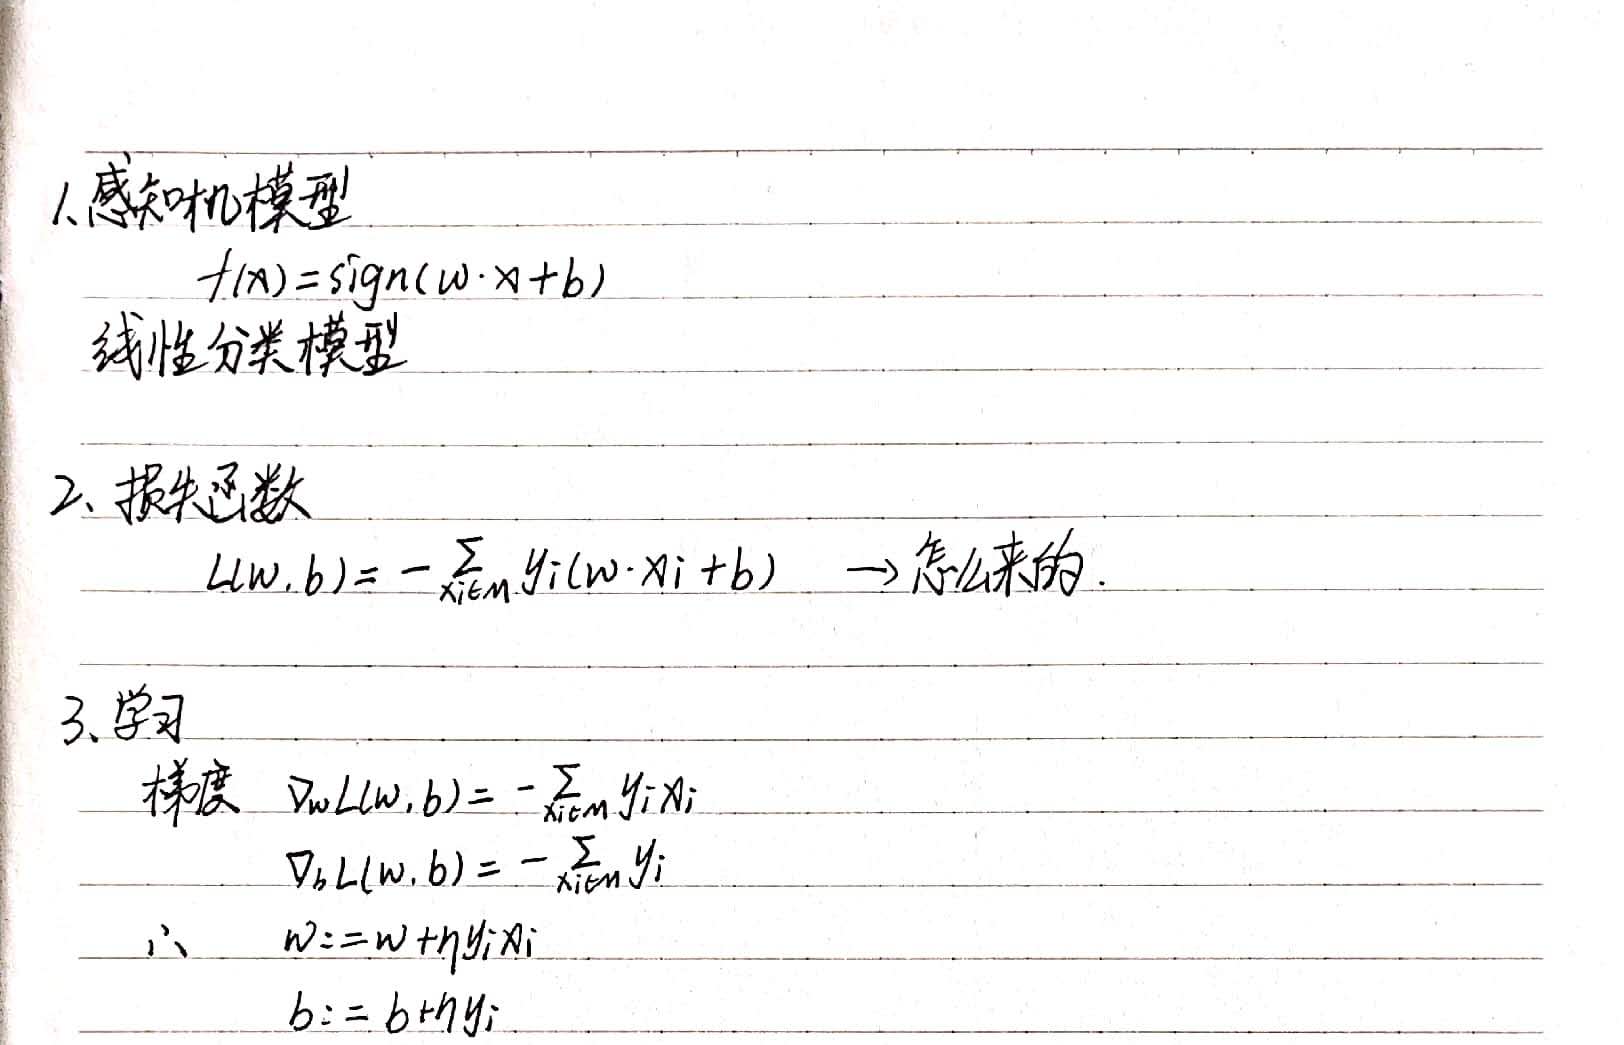 1、感知机模型
f(x)=sign(w·x+b)
线性分类模型
2、损失函数
L(w,b)=-∑xi∈M yi(w·xi+b) →怎么来的.
3、学习
梯度 ∇wL(w,b)=-∑xi∈M yixi
∇bL(w,b)=-∑xi∈M yi
∴ w:=w+ηyixi
b:=b+ηyi